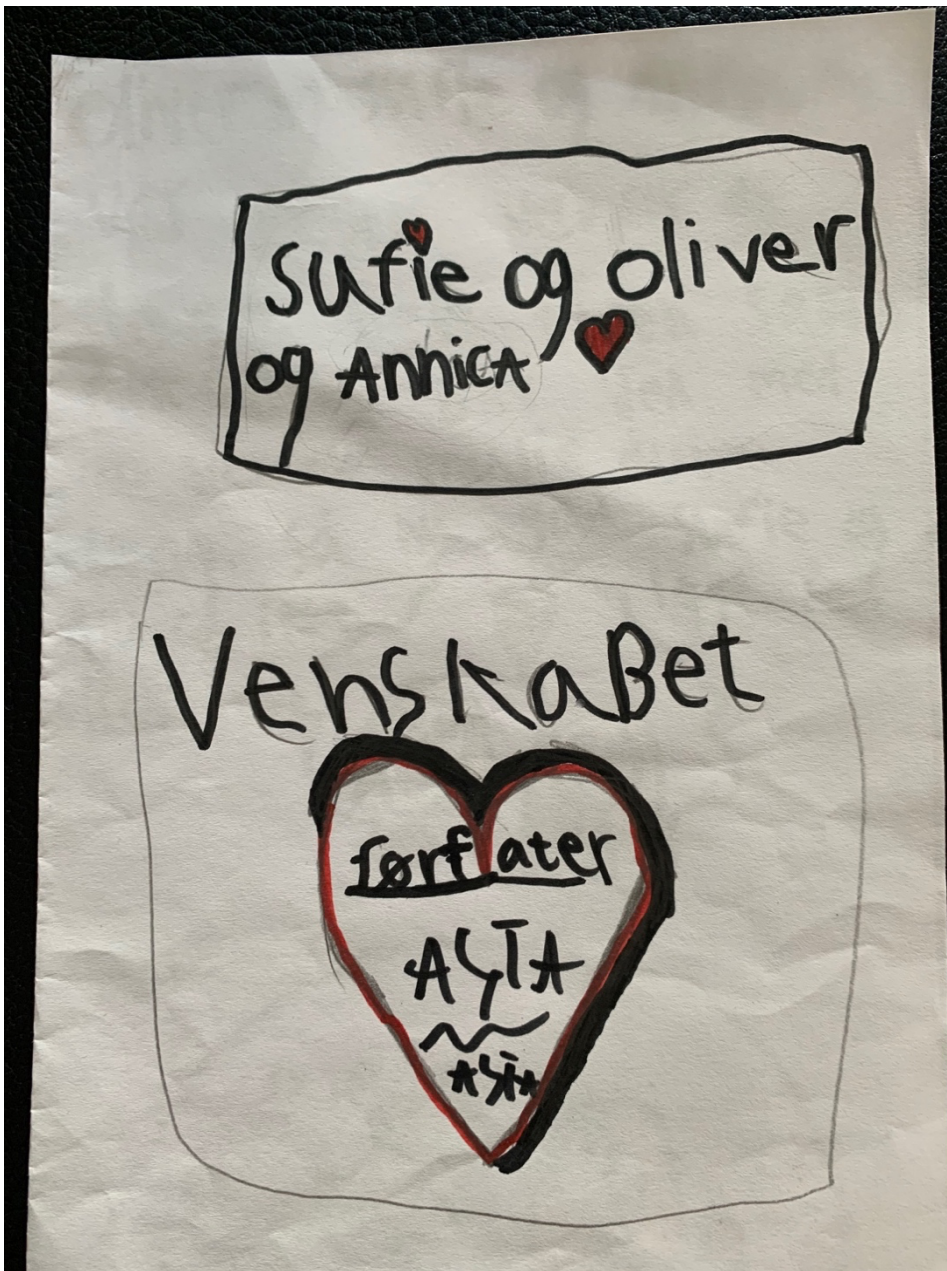 sufie og oliver
og Annica
VenskaBet
førfater
ASTA
ASTA